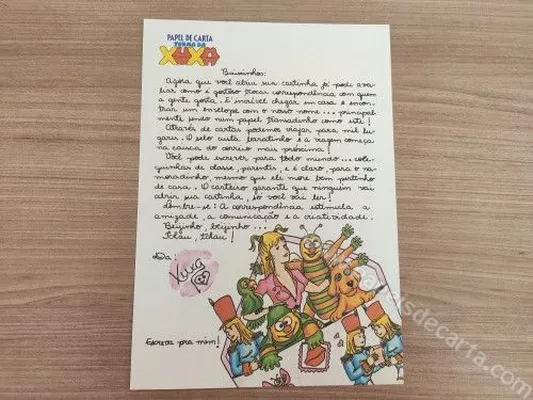 PAPEL DE CARTA
TURMA DA
XUXA
Baixinhos:
Agora que você abriu sua cartinha já pode ava-
liar como é gostoso trocar correspondência com quem
a gente gosta. É incrível chegar em casa e encon-
trar um envelope com o nosso nome... principal
mente sendo num papel transadinho como este!
Através de cartas podemos viajar para mil lu
gares. O selo custa baratinho e a viagem começa
na caixa do correio mais próxima!
Você pode escrever para todo mundo... cole-
guinhas de classe, parentes, e é claro, para o na-
moradinho, mesmo que ele more bem pertinho
de casa. O carteiro garante que ninguém vai
abrir sua cartinha, só você vai ler!
Lembre-se: A correspondência estimula a
amizade, a comunicação e a criatividade.
Beijinho, beijinho...
Tchau, tchau!
Da:
Xuxa
Escreva pra mim!
papeisdecarta.com